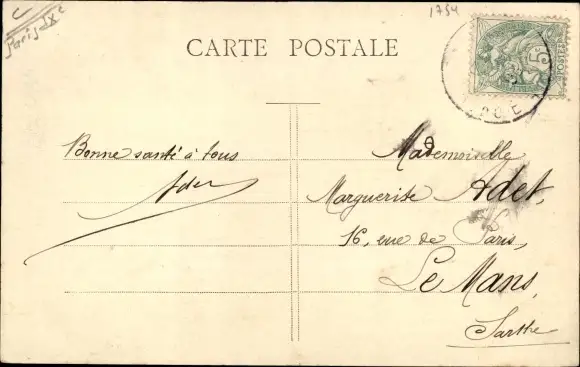 C
Paris IXe
1754
CARTE POSTALE
5c
Bonne santé à tous
Mademoiselle
Marguerite Adet,
16, rue de Paris,
Le Mans,
Sarthe